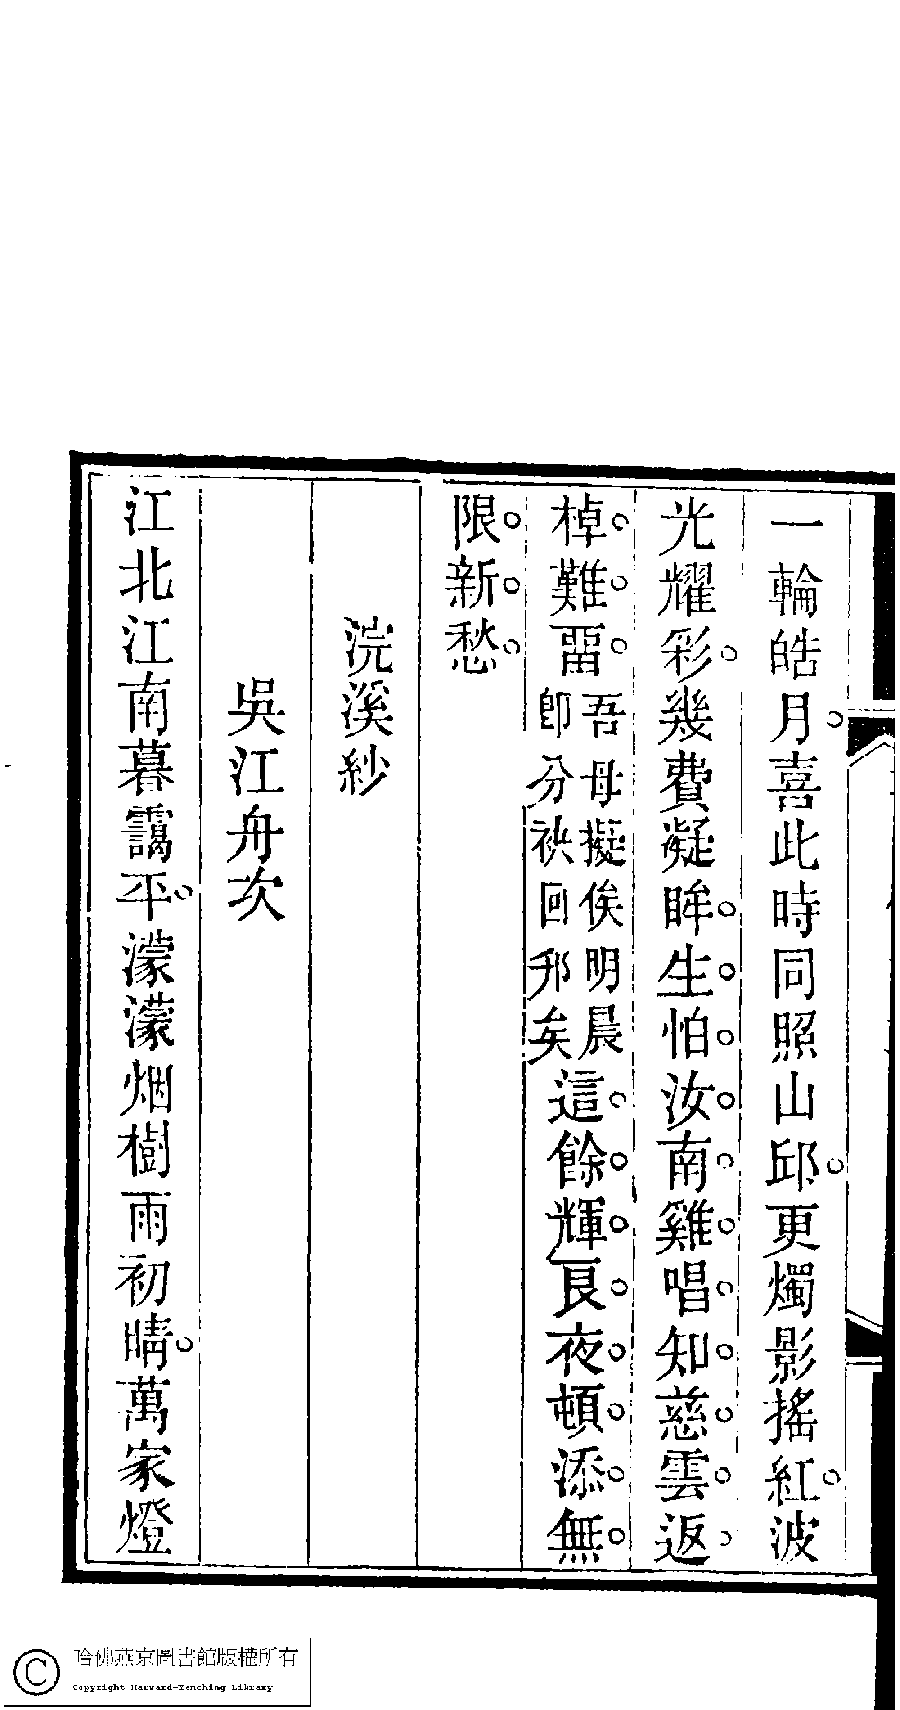 一輪皓月喜此時同照山邱更燭影搖紅波
光耀彩幾費凝眸生怕汝南雞唱知慈雲返
棹難畱吾母擬俟明晨卽分袂回邗矣這餘輝良夜頓添無
限新愁
浣溪紗
吳江舟次
江北江南暮靄平濛濛烟樹雨初晴萬家燈
哈佛燕京圖書館版權所有
Copyright Harvard-Yenching Library